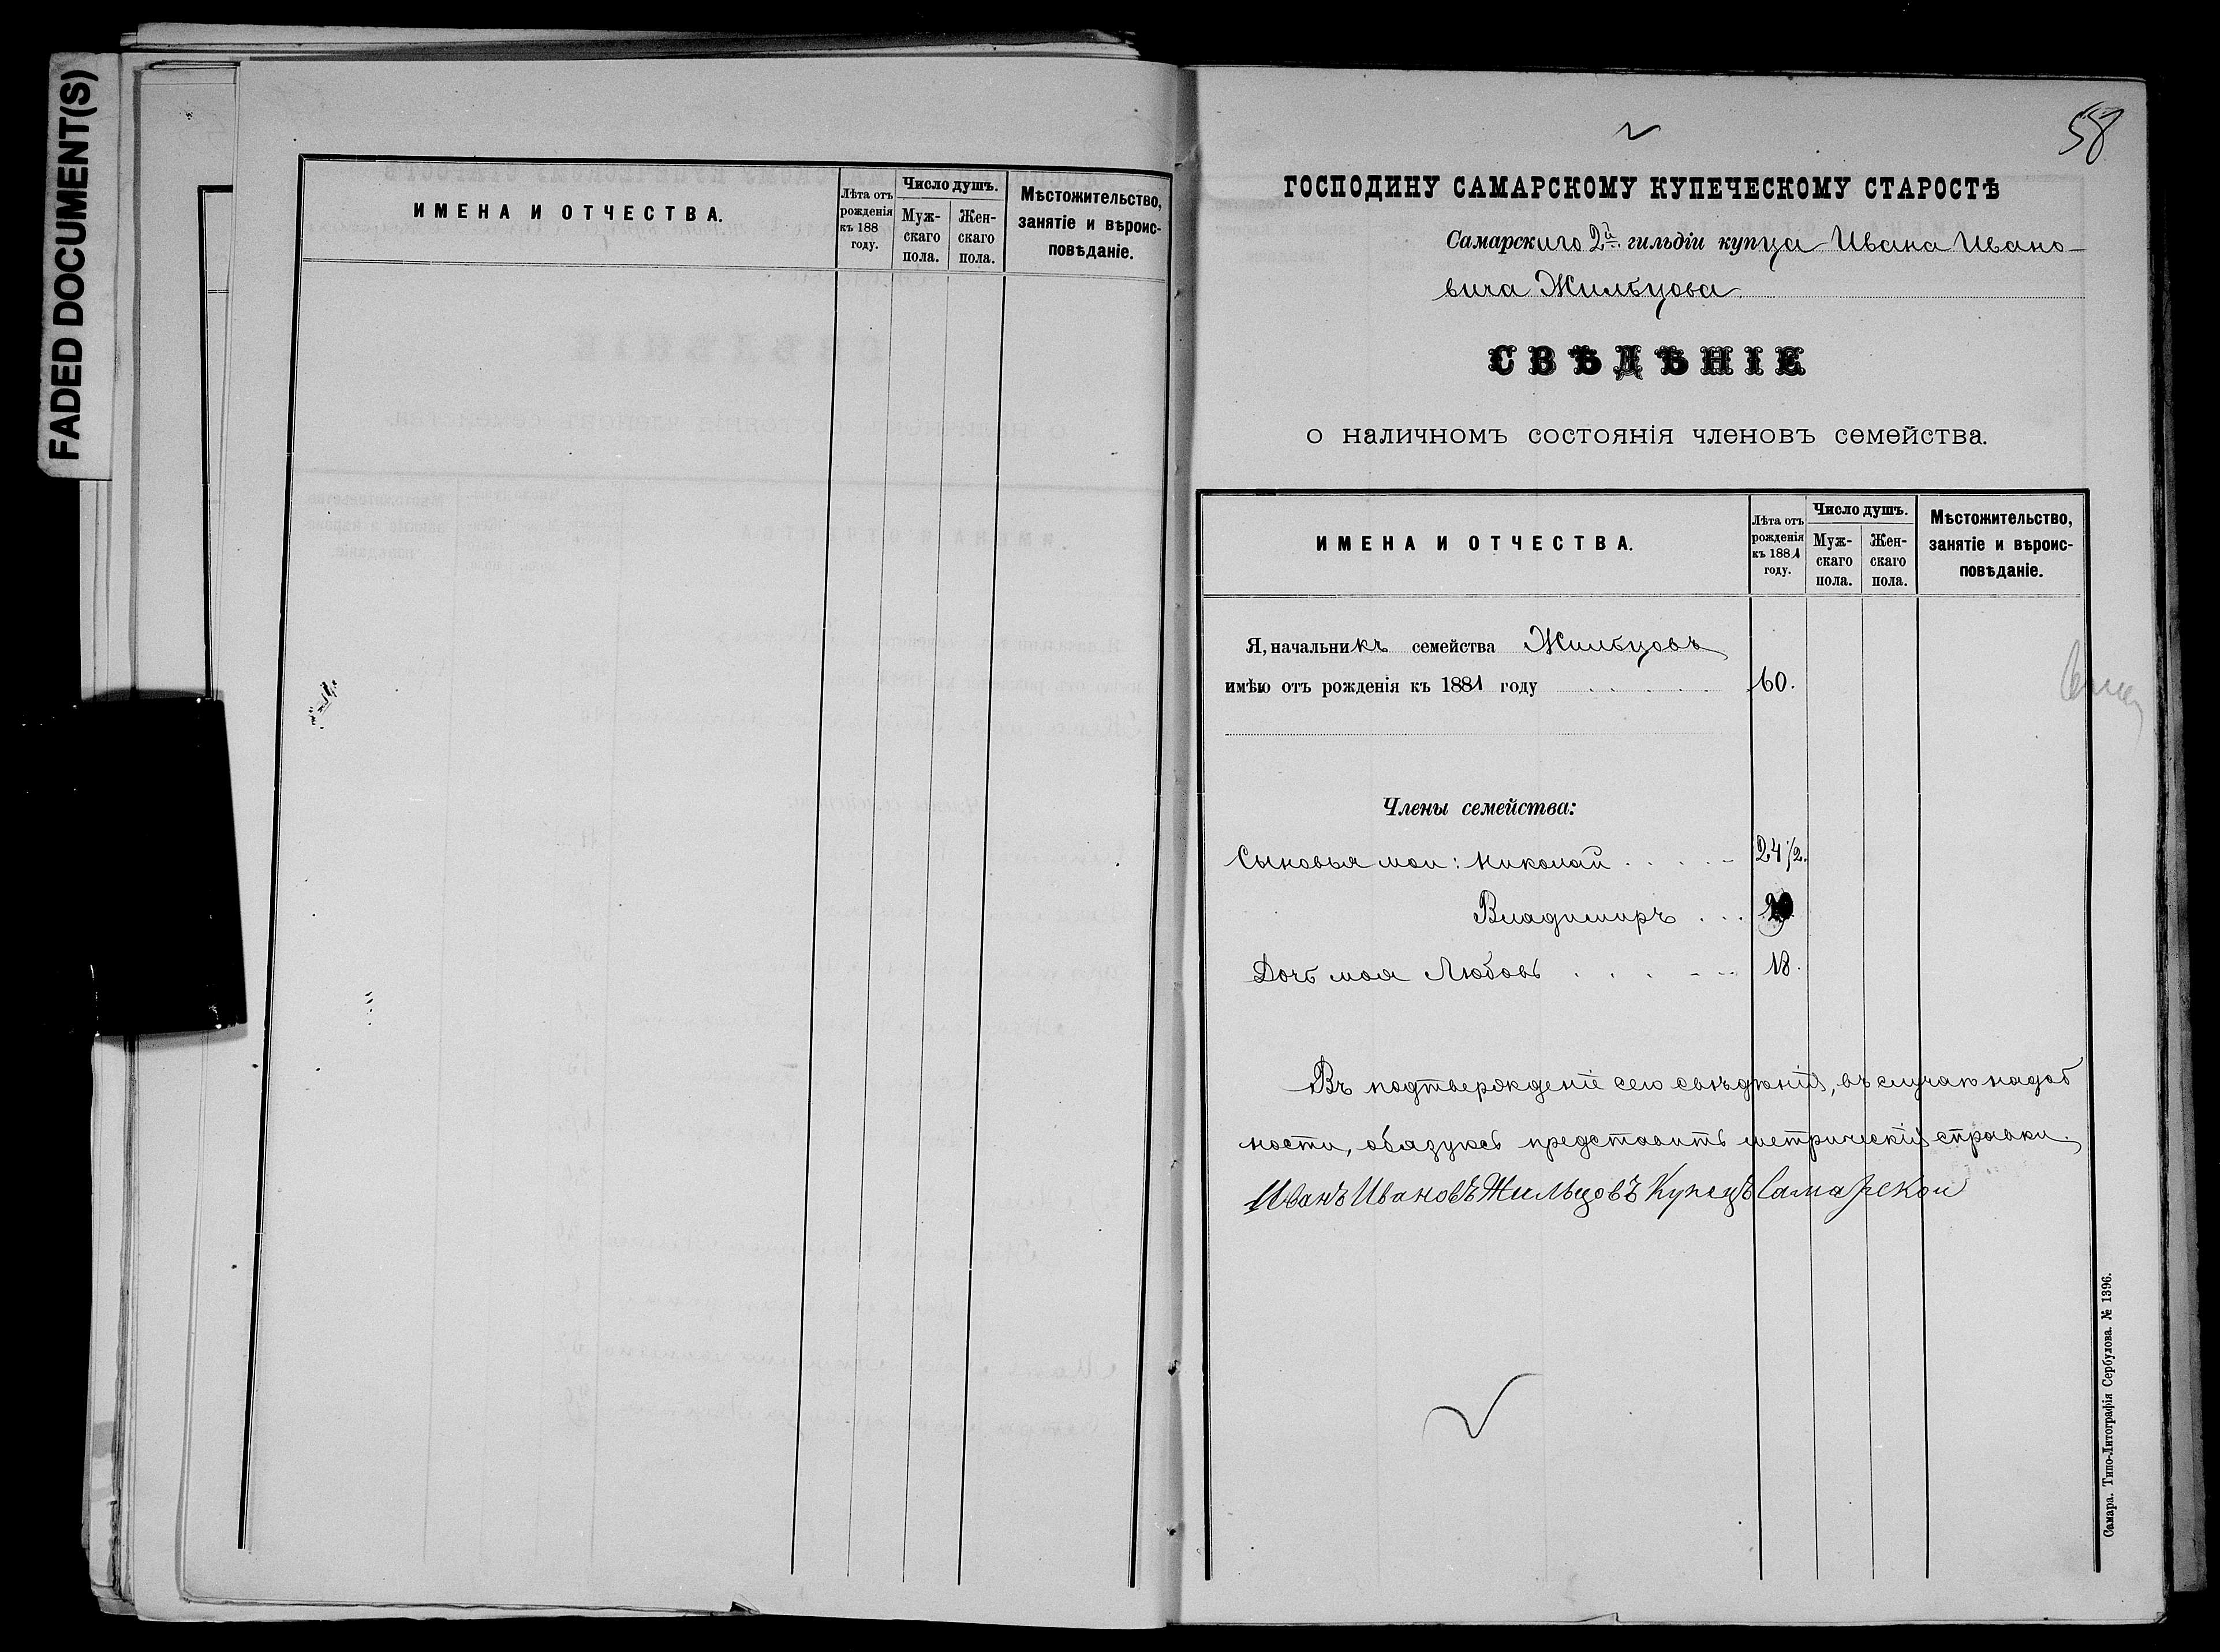 FADED DOCUMENT(S)
ИМЕНА И ОТЧЕСТВА.
Лѣта отъ рожденія къ 188 году.
Число душъ.
Муж-скаго пола.
Жен-скаго пола.
Мѣстожительство, занятіе и вѣроис-повѣданіе.
58
ГОСПОДИНУ САМАРСКОМУ КУПЕЧЕСКОМУ СТАРОСТѢ
Самарскаго 2й гильдіи купца Ивана Ивано-
вича Жильцова
СВѢДѢНІЕ
о наличномъ состоянія членовъ семейства.
ИМЕНА И ОТЧЕСТВА.
Лѣта отъ рожденія къ 1881 году.
Число душъ.
Муж-скаго пола.
Жен-скаго пола.
Мѣстожительство, занятіе и вѣроис-повѣданіе.
Я, начальникъ семейства Жильцовъ
имѣю отъ рожденія къ 1881 году 60.
Члены семейства:
Сыновья мои: Николай 24 1/2.
Владимиръ
Дочь моя Любовь 18.
Въ подтвержденіе сего свѣдѣнія, въ случаѣ надоб
ности, обязуюсь представить метрическія справки.
Иванъ Ивановъ Жильцовъ Купецъ Самарской
Самара. Типо-Литографія Сербулова. № 1396.